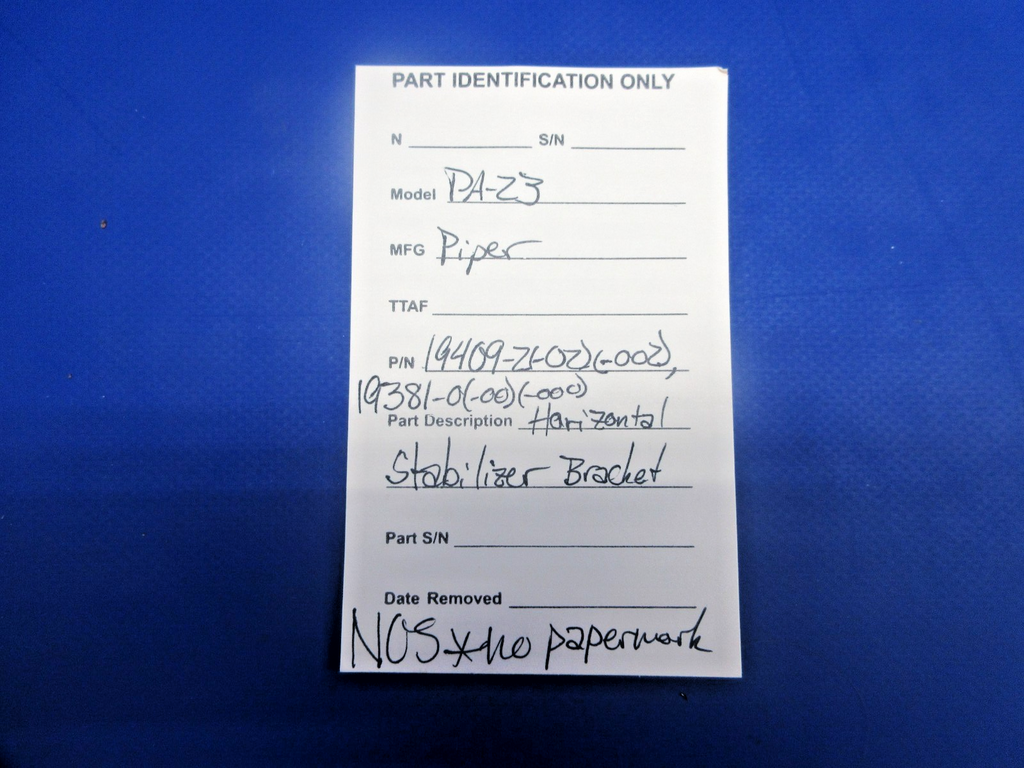 PART IDENTIFICATION ONLY
N S/N
Model PA-23
MFG Piper
TTAF
P/N 19409-2(-02)(-002),
19381-0(-00)(-000)
Part Description Horizontal
Stabilizer Bracket
Part S/N
Date Removed
NOS * no paperwork